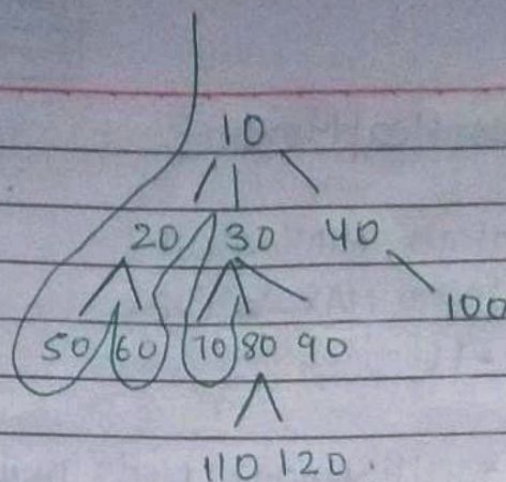 10
20 30 40
100
50 60 70 80 90
110 120.